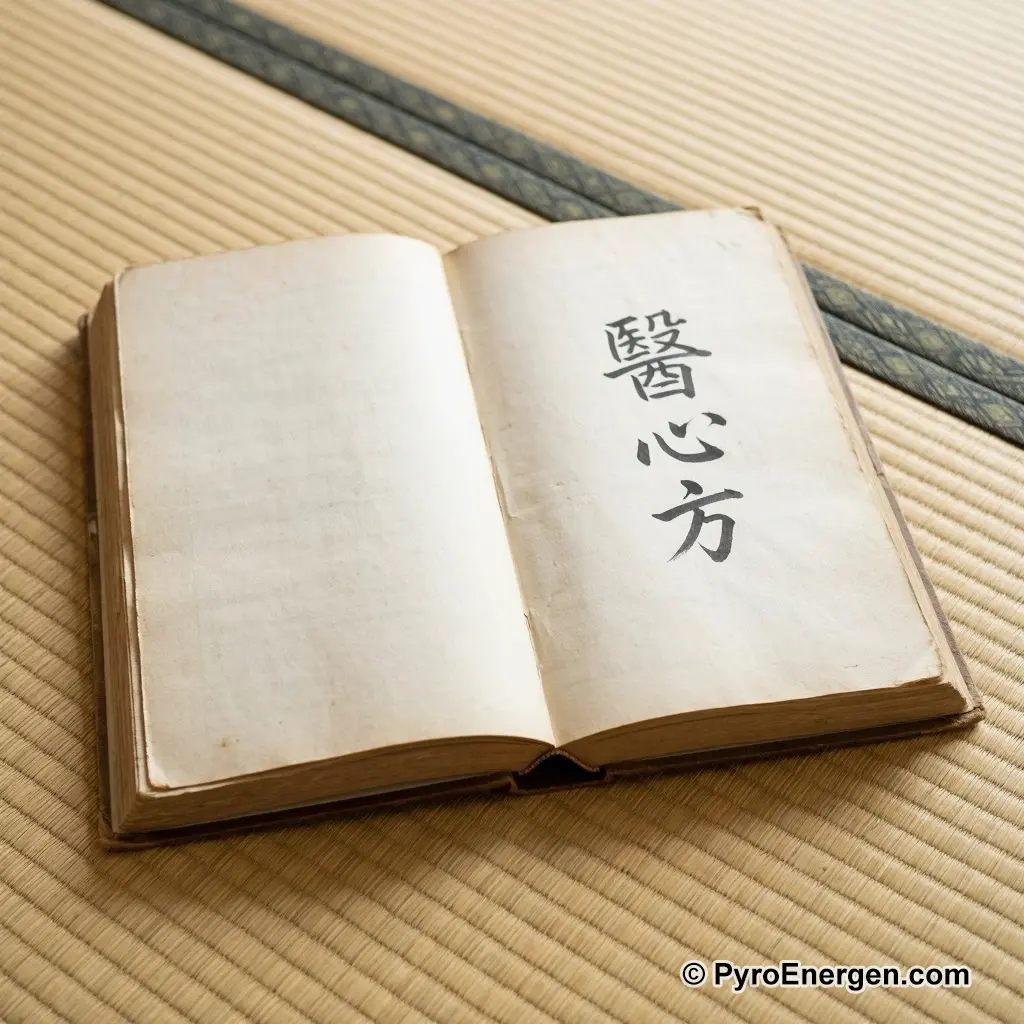 醫心方
© PyroEnergen.com